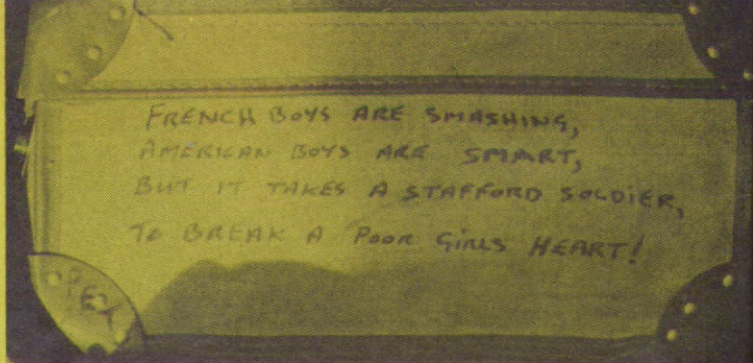 FRENCH BOYS ARE SMASHING,
AMERICAN BOYS ARE SMART,
BUT IT TAKES A STAFFORD SOLDIER,
TO BREAK A POOR GIRLS HEART!